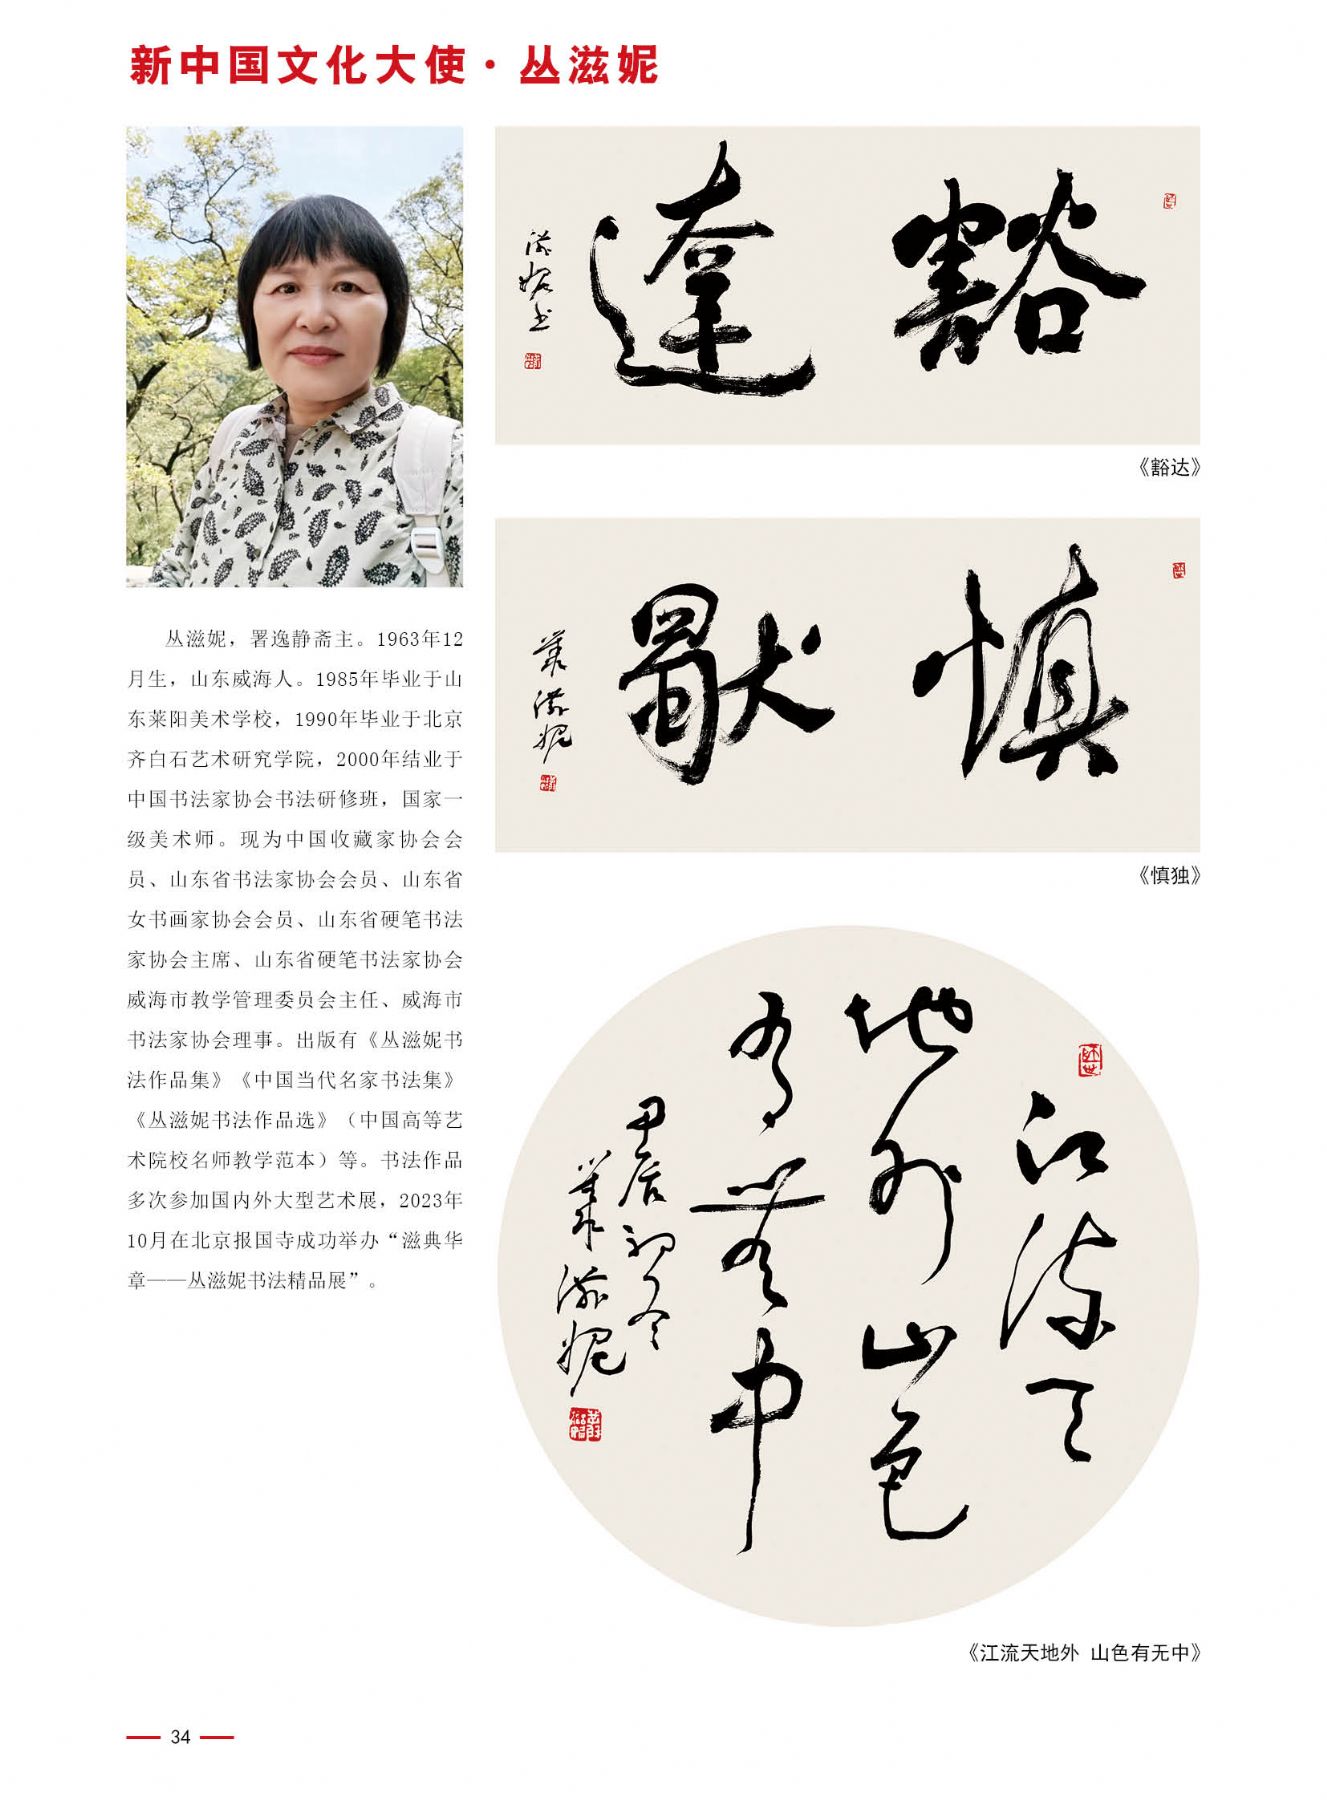 新中国文化大使·丛滋妮
丛滋妮，署逸静斋主。1963年12
月生，山东威海人。1985年毕业于山
东莱阳美术学校，1990年毕业于北京
齐白石艺术研究学院，2000年结业于
中国书法家协会书法研修班，国家一
级美术师。现为中国收藏家协会会
员、山东省书法家协会会员、山东省
女书画家协会会员、山东省硬笔书法
家协会主席、山东省硬笔书法家协会
威海市教学管理委员会主任、威海市
书法家协会理事。出版有《丛滋妮书
法作品集》《中国当代名家书法集》
《丛滋妮书法作品选》（中国高等艺
术院校名师教学范本）等。书法作品
多次参加国内外大型艺术展，2023年
10月在北京报国寺成功举办“滋典华
章——丛滋妮书法精品展”。
豁達
滋妮书
《豁达》
慎獨
叢滋妮
《慎独》
江流天
地外山色
有無中
甲辰初冬
叢滋妮
《江流天地外 山色有无中》
34